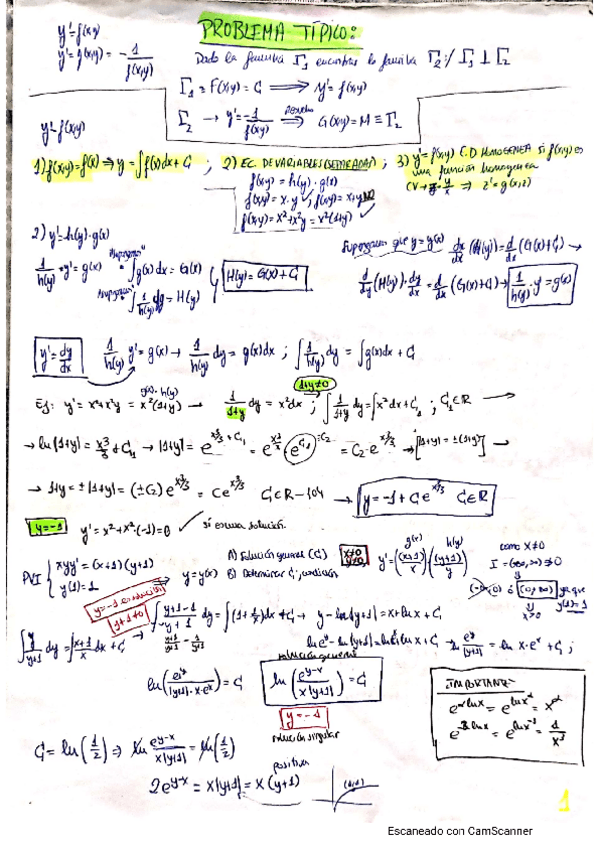 PROBLEMA TÍPICO:
y'=f(x,y)
y'=g(x,y)= -1/f(x,y)
Dado la familia Γ1 encontrar la familia Γ2 :/ Γ1 ⊥ Γ2
Γ1 ≡ F(x,y) = C ⟹ y'=f(x,y)
Γ2 → y'= -1/f(x,y) ⟹ G(x,y)=M ≡ Γ2
y'=f(x,y)
1) f(x,y)=f(x) ⇒ y=∫f(x)dx+C ; 2) EC. DE VARIABLES (SEPARADAS) ; 3) y'=f(x,y) E.D HOMOGENEA si f(x,y) es
una función homogenea
f(x,y)=h(y)·g(x)
CV z=y/x ⇒ z'=g(x,z)
f(x,y)=x·y ✓, f(x,y)=x+y NO
f(x,y)=x²+x²y=x²(1+y) ✓
2) y'=h(y)·g(x)
1/h(y)·y'=g(x)
∫g(x)dx=G(x)
∫1/h(y)dy=H(y)
H(y)=G(x)+C
Supongamos que y=y(x) d/dx(H(y))=d/dx(G(x)+C) →
d/dy(H(y))·dy/dx=d/dx(G(x)+C) → 1/h(y)·y'=g(x)
y'=dy/dx
1/h(y) y'=g(x) → 1/h(y) dy=g(x)dx ; ∫1/h(y) dy=∫g(x)dx+C
g(x)·h(y)
1+y≠0
Ej: y'=x²+x²y=x²(1+y) → 1/(1+y) dy=x²dx ; ∫1/(1+y) dy=∫x²dx+C1 ; C1∈R →
→ ln|1+y|=x³/3+C1 → |1+y|=e^(x³/3+C1)=e^(x³/3)·e^(C1)=C2·e^(x³/3) → [|1+y|=±(1+y)] →
→ 1+y=±|1+y|=(±C2)e^(x³/3)=Ce^(x³/3) C∈R-{0} → y=-1+Ce^(x³/3) C∈R
y=-1 y'=x²+x²·(-1)=0 ✓ si es una solución.
PVI { xyy'=(x+1)(y+1)
y(1)=1
⇒ y=y(x)
A) Solución general (C)
B) Determinar C, condición
x≠0
y≠0
g(x) h(y)
y'=((x+1)/x)·((y+1)/y)
como x≠0
(-∞,0) ó (0,∞) ya que
y(1)=1
x>0
y=-1 es solución
y+1≠0
∫y/(y+1) dy=∫(x+1)/x dx+C → ∫(y+1-1)/(y+1) dy=∫(1+1/x)dx+C → y-ln|y+1|=x+ln x+C
ln e^y-ln|y+1|=ln e^x+ln x+C → ln e^y/|y+1|=ln x·e^x+C ;
solución general
ln(e^y/(|y+1|·x·e^x))=C
ln(e^(y-x)/(x|y+1|))=C
y=-1
solución singular
IMPORTANTE
e^(α ln x)=e^(ln x^α)=x^α
e^(-3 ln x)=e^(ln x^-3)=1/x³
C=ln(1/2) ⇒ ln e^(y-x)/(x|y+1|)=ln(1/2)
positiva
2e^(y-x)=x|y+1|=x(y+1)
(1,1)
1
Escaneado con CamScanner